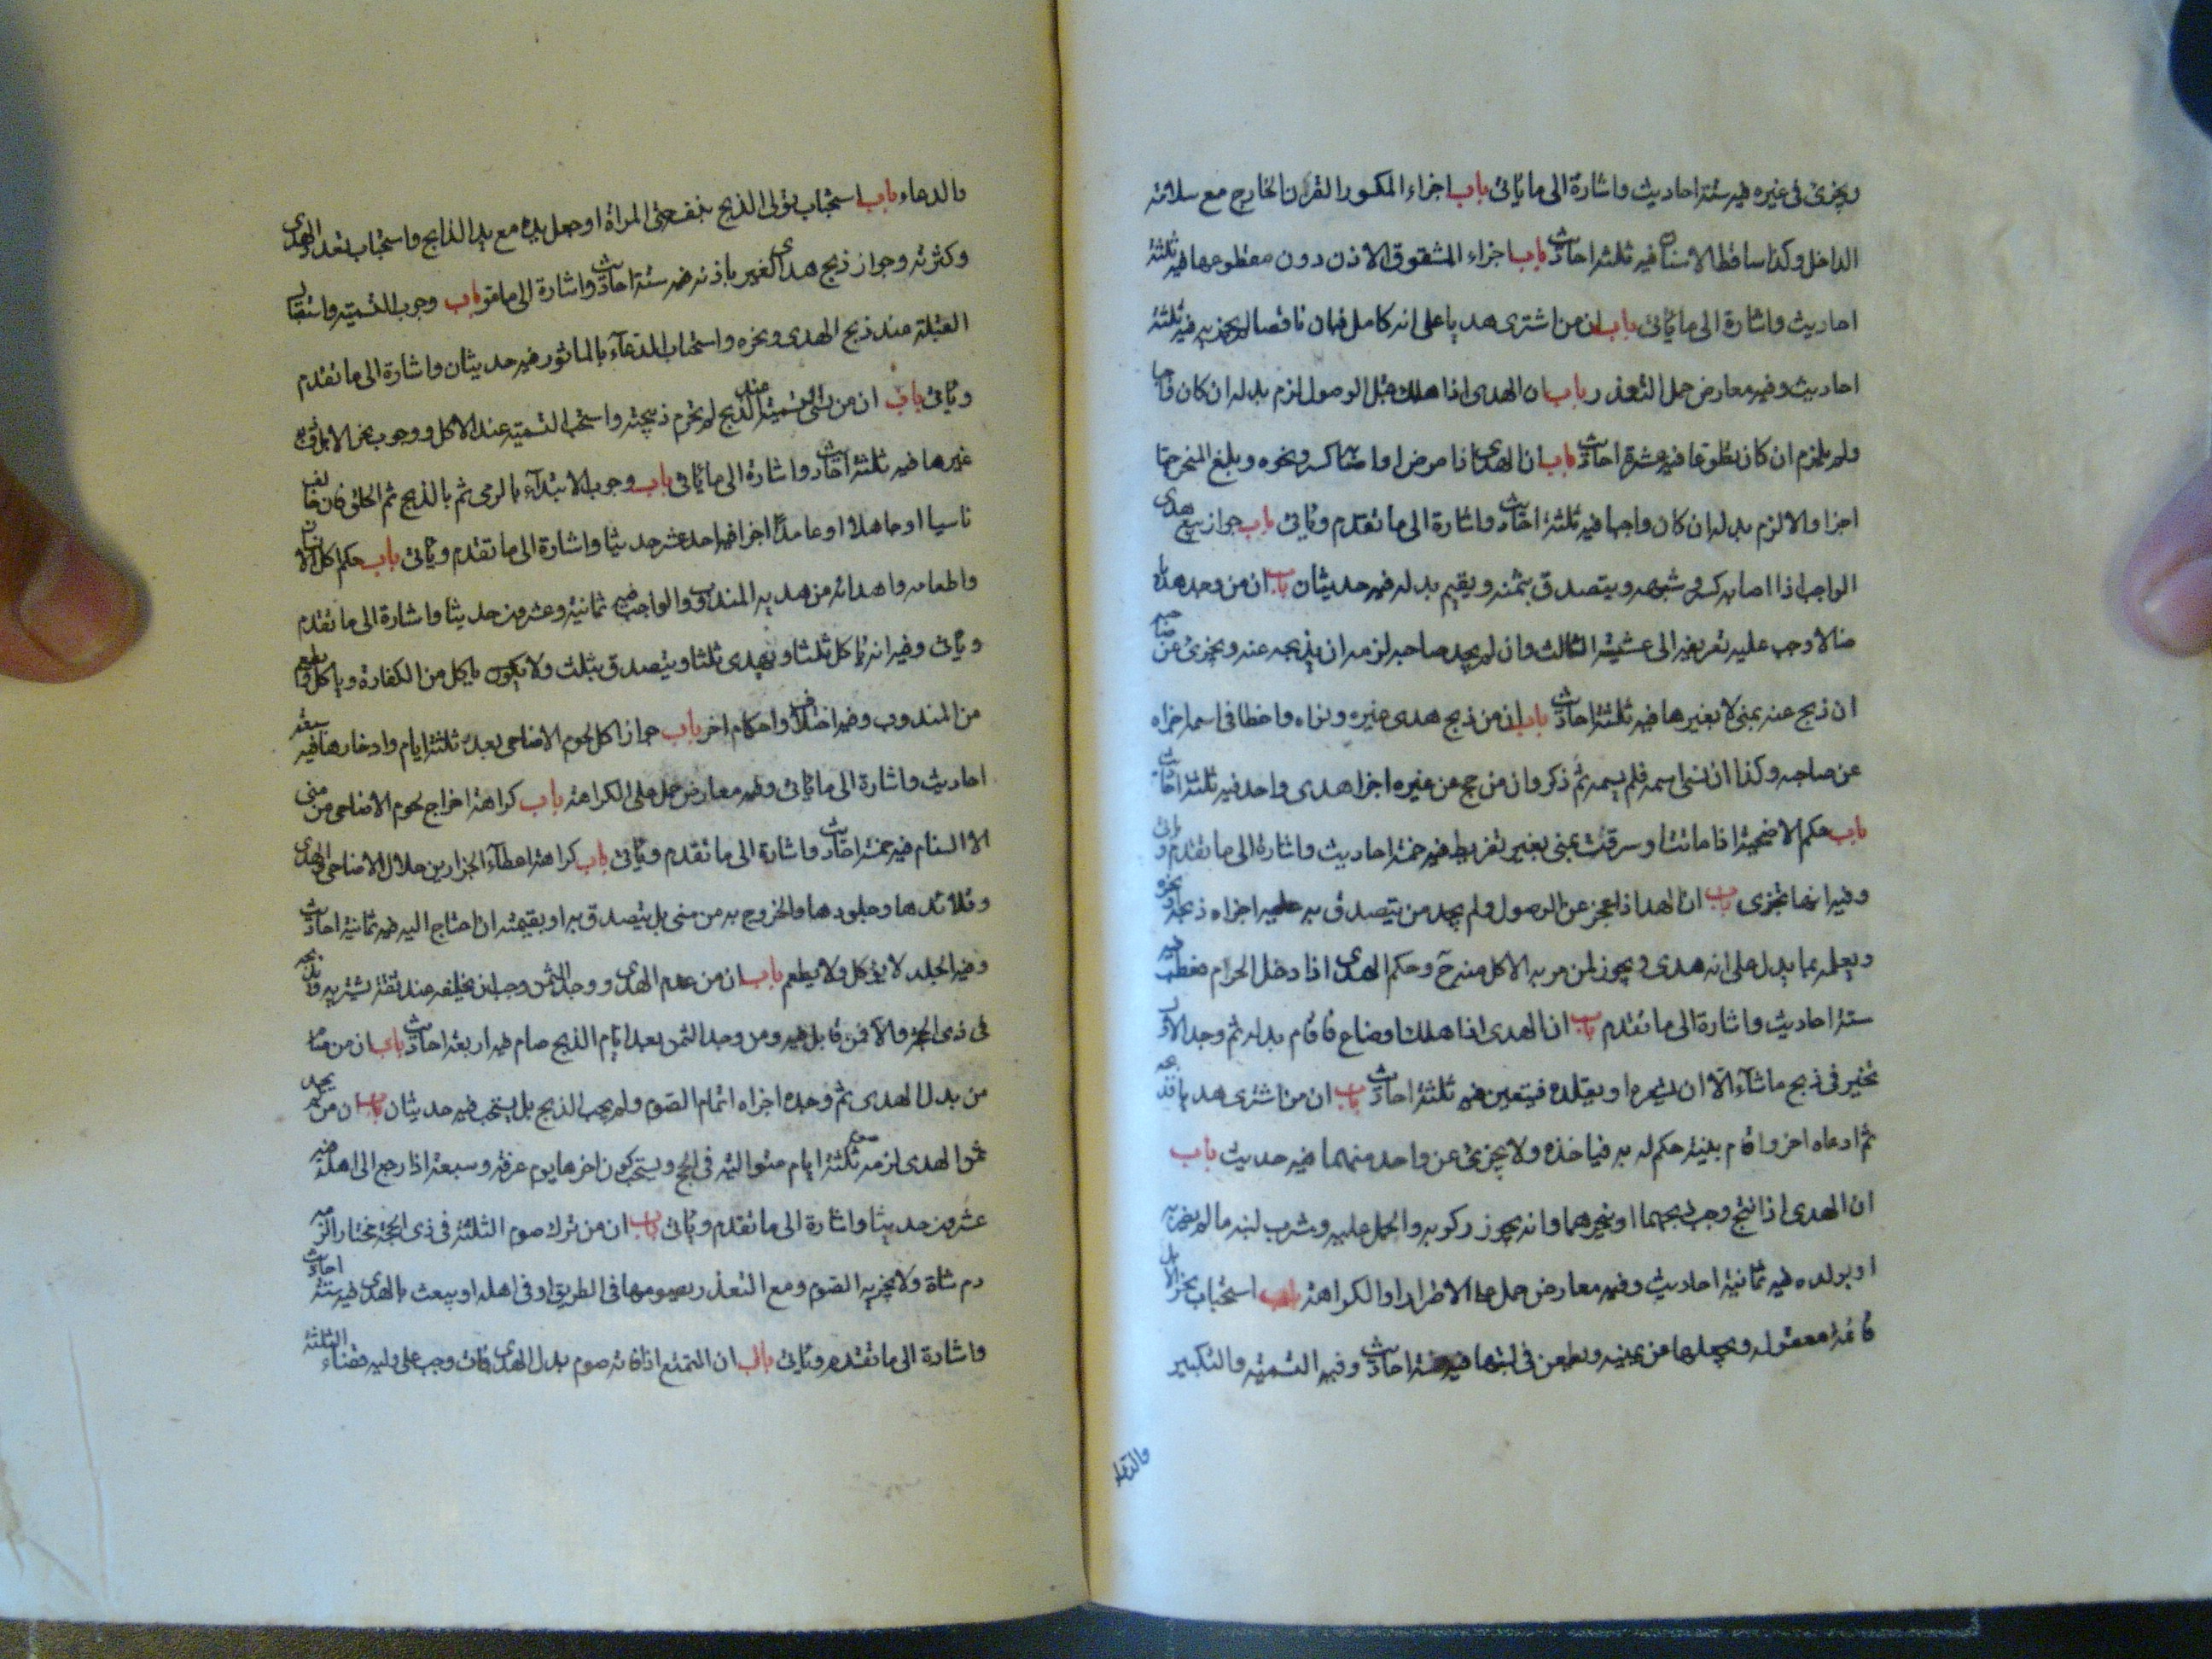 ويجزئ في غيره فيه ستة احاديث واشارة الى ما يأتى باب اجزاء المكسور القرن الخارج مع سلامة
الداخل وكذا ساقط الاسنان فيه ثلثة احاديث باب اجزاء المشقوق الاذن دون مقطوعها فيه ثلثة
احاديث واشارة الى ما يأتى باب ان من اشترى هديا على انه كامل فبان ناقصا لم يجز به فيه ثلثة
احاديث وفيه معارض حمل التعذر باب ان الهدى اذا هلك قبل الوصول لزم بدله ان كان واجبا
ولم يلزم ان كان تطوعا فيه عشرة احاديث باب ان الهدى اذا مرض او اصابه كسر ونحوه وبلغ المنحر حيا
اجزا والا لزم بدله ان كان واجبا فيه ثلثة احاديث واشارة الى ما تقدم ويأتى باب جواز بيع هدى
الواجب اذا اصابه كسر وشبهه ويتصدق بثمنه ويقيم بدله فيه حديثان باب ان من وجد هديا
ضالا وجب عليه تعريفه الى عشية الثالث وان لم يجد صاحبه لزمه ان يذبحه عنه ويجزئ عن صاحبه
ان ذبح عنه بمنى لا بغيرها فيه ثلثة احاديث باب ان من ذبح هدى غيره ونواه واخطا فى اسمه اجزاه
عن صاحبه وكذا ان نسى اسمه فلم يسمه ثم ذكر وان من حج عن غيره اجزا هدى واحد فيه ثلثة احاديث
باب حكم الاضحية اذا ماتت او سرقت بمنى بغير تفريط فيه خمسة احاديث واشارة الى ما تقدم ويأتى
وفيه انها تجزى باب ان الهدى اذا عجز عن الوصول ولم يجد من يتصدق به عليه اجزاه ذبحه ونحره
ويعلمه بما يدل على انه هدى ويجوز لمن مر به الاكل منه ح وحكم الهدى اذا دخل الحرام فعطب فيه
ستة احاديث واشارة الى ما تقدم باب ان الهدى اذا هلك او ضاع فاقام بدله ثم وجد الاول
تخير فى ذبح ما شاء الا ان يشعره او يقلده فيتعين فيه ثلثة احاديث باب ان من اشترى هديا فذبحه
ثم ادعاه اخر واقام بينة حكم له به فياخذه ولا يجزئ عن واحد منهما فيه حديث باب
ان الهدى اذا نتج وجب ذبحهما او نحرهما وانه يجوز ركوبه والحمل عليه وشرب لبنه ما لم يضر به
او بولده فيه ثمانية احاديث وفيه معارض حمل على الاضرار او الكراهة باب استحباب نحر الابل
قائمة معقولة ويجعلها عن يمينه ويطعن فى لبتها فيه خمسة احاديث وفيه التسمية والتكبير
والدعاء
والدعاء باب استحباب تولى الذبح بنفسه حتى المراة او جعل يده مع يد الذابح واستحباب تعدد الهدى
وكثرته وجواز ذبح هدى الغير باذنه فيه ستة احاديث واشارة الى ما مر باب وجوب التسمية واستقبال
القبلة عند ذبح الهدى ونحره واستحباب الدعاء بالماثور فيه حديثان واشارة الى ما تقدم
ويأتى باب ان من نسى التسمية عند الذبح لم تحرم ذبيحته واستحب التسمية عند الاكل ووجوب نحر الابل
غيرها فيه ثلثة احاديث واشارة الى ما يأتى باب وجوب الابتداء بالرمى ثم بالذبح ثم الحلق فان خالف
ناسيا او جاهلا او عامدا اجزا فيه احد عشر حديثا واشارة الى ما تقدم ويأتى باب حكم اكل الانسان
واطعامه واهدائه من هديه المندوب والواجب فيه ثمانية وعشرون حديثا واشارة الى ما تقدم
ويأتى وفيه انه يأكل ثلثا ويهدى ثلثا ويتصدق بثلث ولا يأكل من الكفارة ويأكل ويطعم
من المندوب وفيه اختلاف واحكام اخر باب جواز اكل لحوم الاضاحى بعد ثلثة ايام وادخارها فيه سبعة
احاديث واشارة الى ما يأتى وفيه معارض حمل على الكراهة باب كراهة اخراج لحوم الاضاحى من منى
الا السنام فيه خمسة احاديث واشارة الى ما تقدم ويأتى باب كراهة اعطاء الجزارين جلال الاضاحى والهدى
وقلائدها وجلودها والخروج به من منى بل يتصدق به او بقيمته ان احتاج اليه فيه ثمانية احاديث
وفيه الجلد لا يؤكل ولا يطعم باب ان من عدم الهدى ووجد الثمن وجب ان يخلفه عند ثقة يشتريه ويذبحه
فى ذى الحجة والا فمن قابل فيه ومن وجد الثمن بعد ايام الذبح صام فيه اربعة احاديث باب ان من صام
من بدل الهدى ثم وجده اجزاه اتمام الصوم ولم يجب الذبح بل يستحب فيه حديثان باب ان من لم يجد
ثمن الهدى لزمه صوم ثلثة ايام متوالية فى الحج ويستحب كون اخرها يوم عرفة وسبعة اذا رجع الى اهله فيه
عشرون حديثا واشارة الى ما تقدم ويأتى باب ان من ترك صوم الثلثة فى ذى الحجة مختارا لزمه
دم شاة ولا يجزيه الصوم ومع التعذر يصومها فى الطريق او فى اهله او يبعث بالهدى فيه ستة احاديث
واشارة الى ما تقدم ويأتى باب ان المتمتع اذا فاته صوم بدل الهدى فمات وجب على وليه قضاء الثلثة